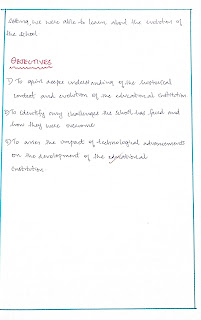 we were able to learn about the evolution of
the school
OBJECTIVES
1) To gain deeper understanding of the historical
context and evolution of the educational institution
2) To identify any challenges the school has faced and
how they were overcome
3) To asses the impact of technological advancements
on the development of the educational
institution